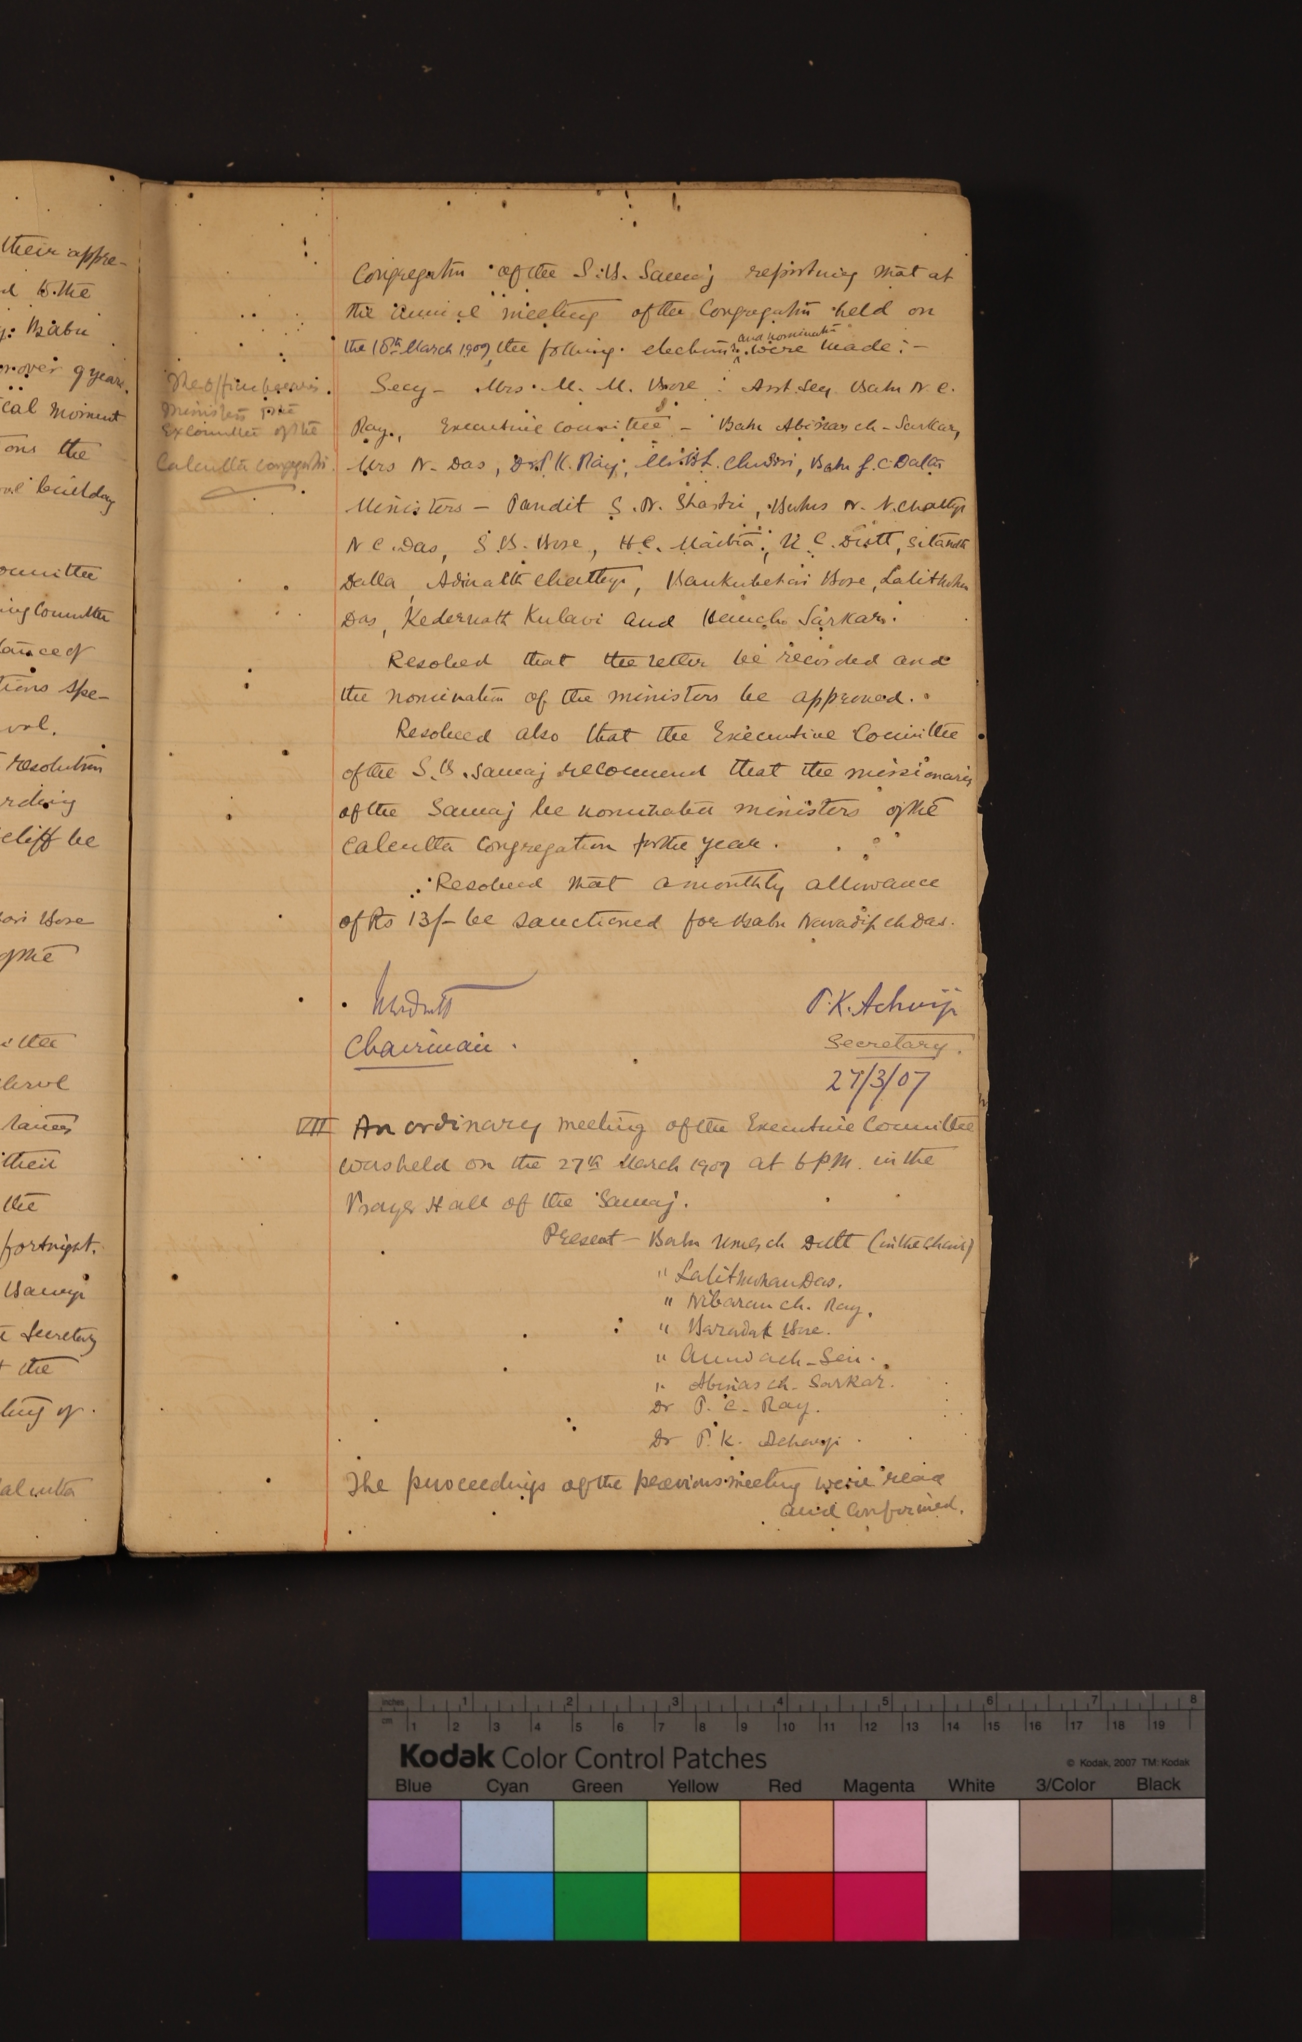 their appre-
to the
Babu
over 9 years.
cal moment
ons the
building
ommittee
ing Committee
ance of
tions spe-
val.
resolution
rding
cliff be
Bose
of the
ittee
their
the
fortnight.
Secretary
the
ting of
alcutta
The office bearers.
Ministers & the
Ex Committee of the
Calcutta Congregation.
Congregation of the S. B. Samaj reporting that at
the annual meeting of the Congregation held on
and nominations
the 16th March 1907, the following elections were made:-
Secy - Mrs. M. M. Bose : Asst. Secy. Babu N. C.
Ray., Executive Committee - Babu Abinas ch - Sarkar,
Mrs N. Das, Dr P. K. Ray, Miss L. Chudri, Babu G. C. Dalta
Ministers - Pandit S. N. Shastri, Babus N. N. Chatterji
N C. Das, S. B. Bose, H C. Maitra, U. C. Dutt, Sitanath
Datta, Adinath Chatterji, Bankubehari Bose, Lalitmohan
Das, Kedernath Kulavi and Hem ch. Sarkar.
Resolved that the letter be recorded and
the nomination of the ministers be approved.
Resolved also that the Executive Committee
of the S. B. Samaj recommend that the missionaries
of the Samaj be nominated ministers of the
Calcutta Congregation for the year.
Resolved that a monthly allowance
of Rs 13/- be sanctioned for Babu Navadip ch Das.
P. K. Acharji
Chairman.
Secretary.
27/3/07
VII An ordinary meeting of the Executive Committee
was held on the 27th March 1907 at 6 P.M. in the
Prayer Hall of the Samaj.
Present - Babu Umesh ch Dutt (in the Chair)
" Lalit Mohan Das.
" Nibaran ch. Ray.
" Baradak Bose.
" Annada ch - Sen.
" Abinas ch - Sarkar.
Dr P. C. Ray.
Dr P. K. Acharji.
The proceedings of the previous meeting were read
and confirmed.
inches 1 2 3 4 5 6 7 8
cm 1 2 3 4 5 6 7 8 9 10 11 12 13 14 15 16 17 18 19
Kodak Color Control Patches
© Kodak, 2007 TM: Kodak
Blue Cyan Green Yellow Red Magenta White 3/Color Black